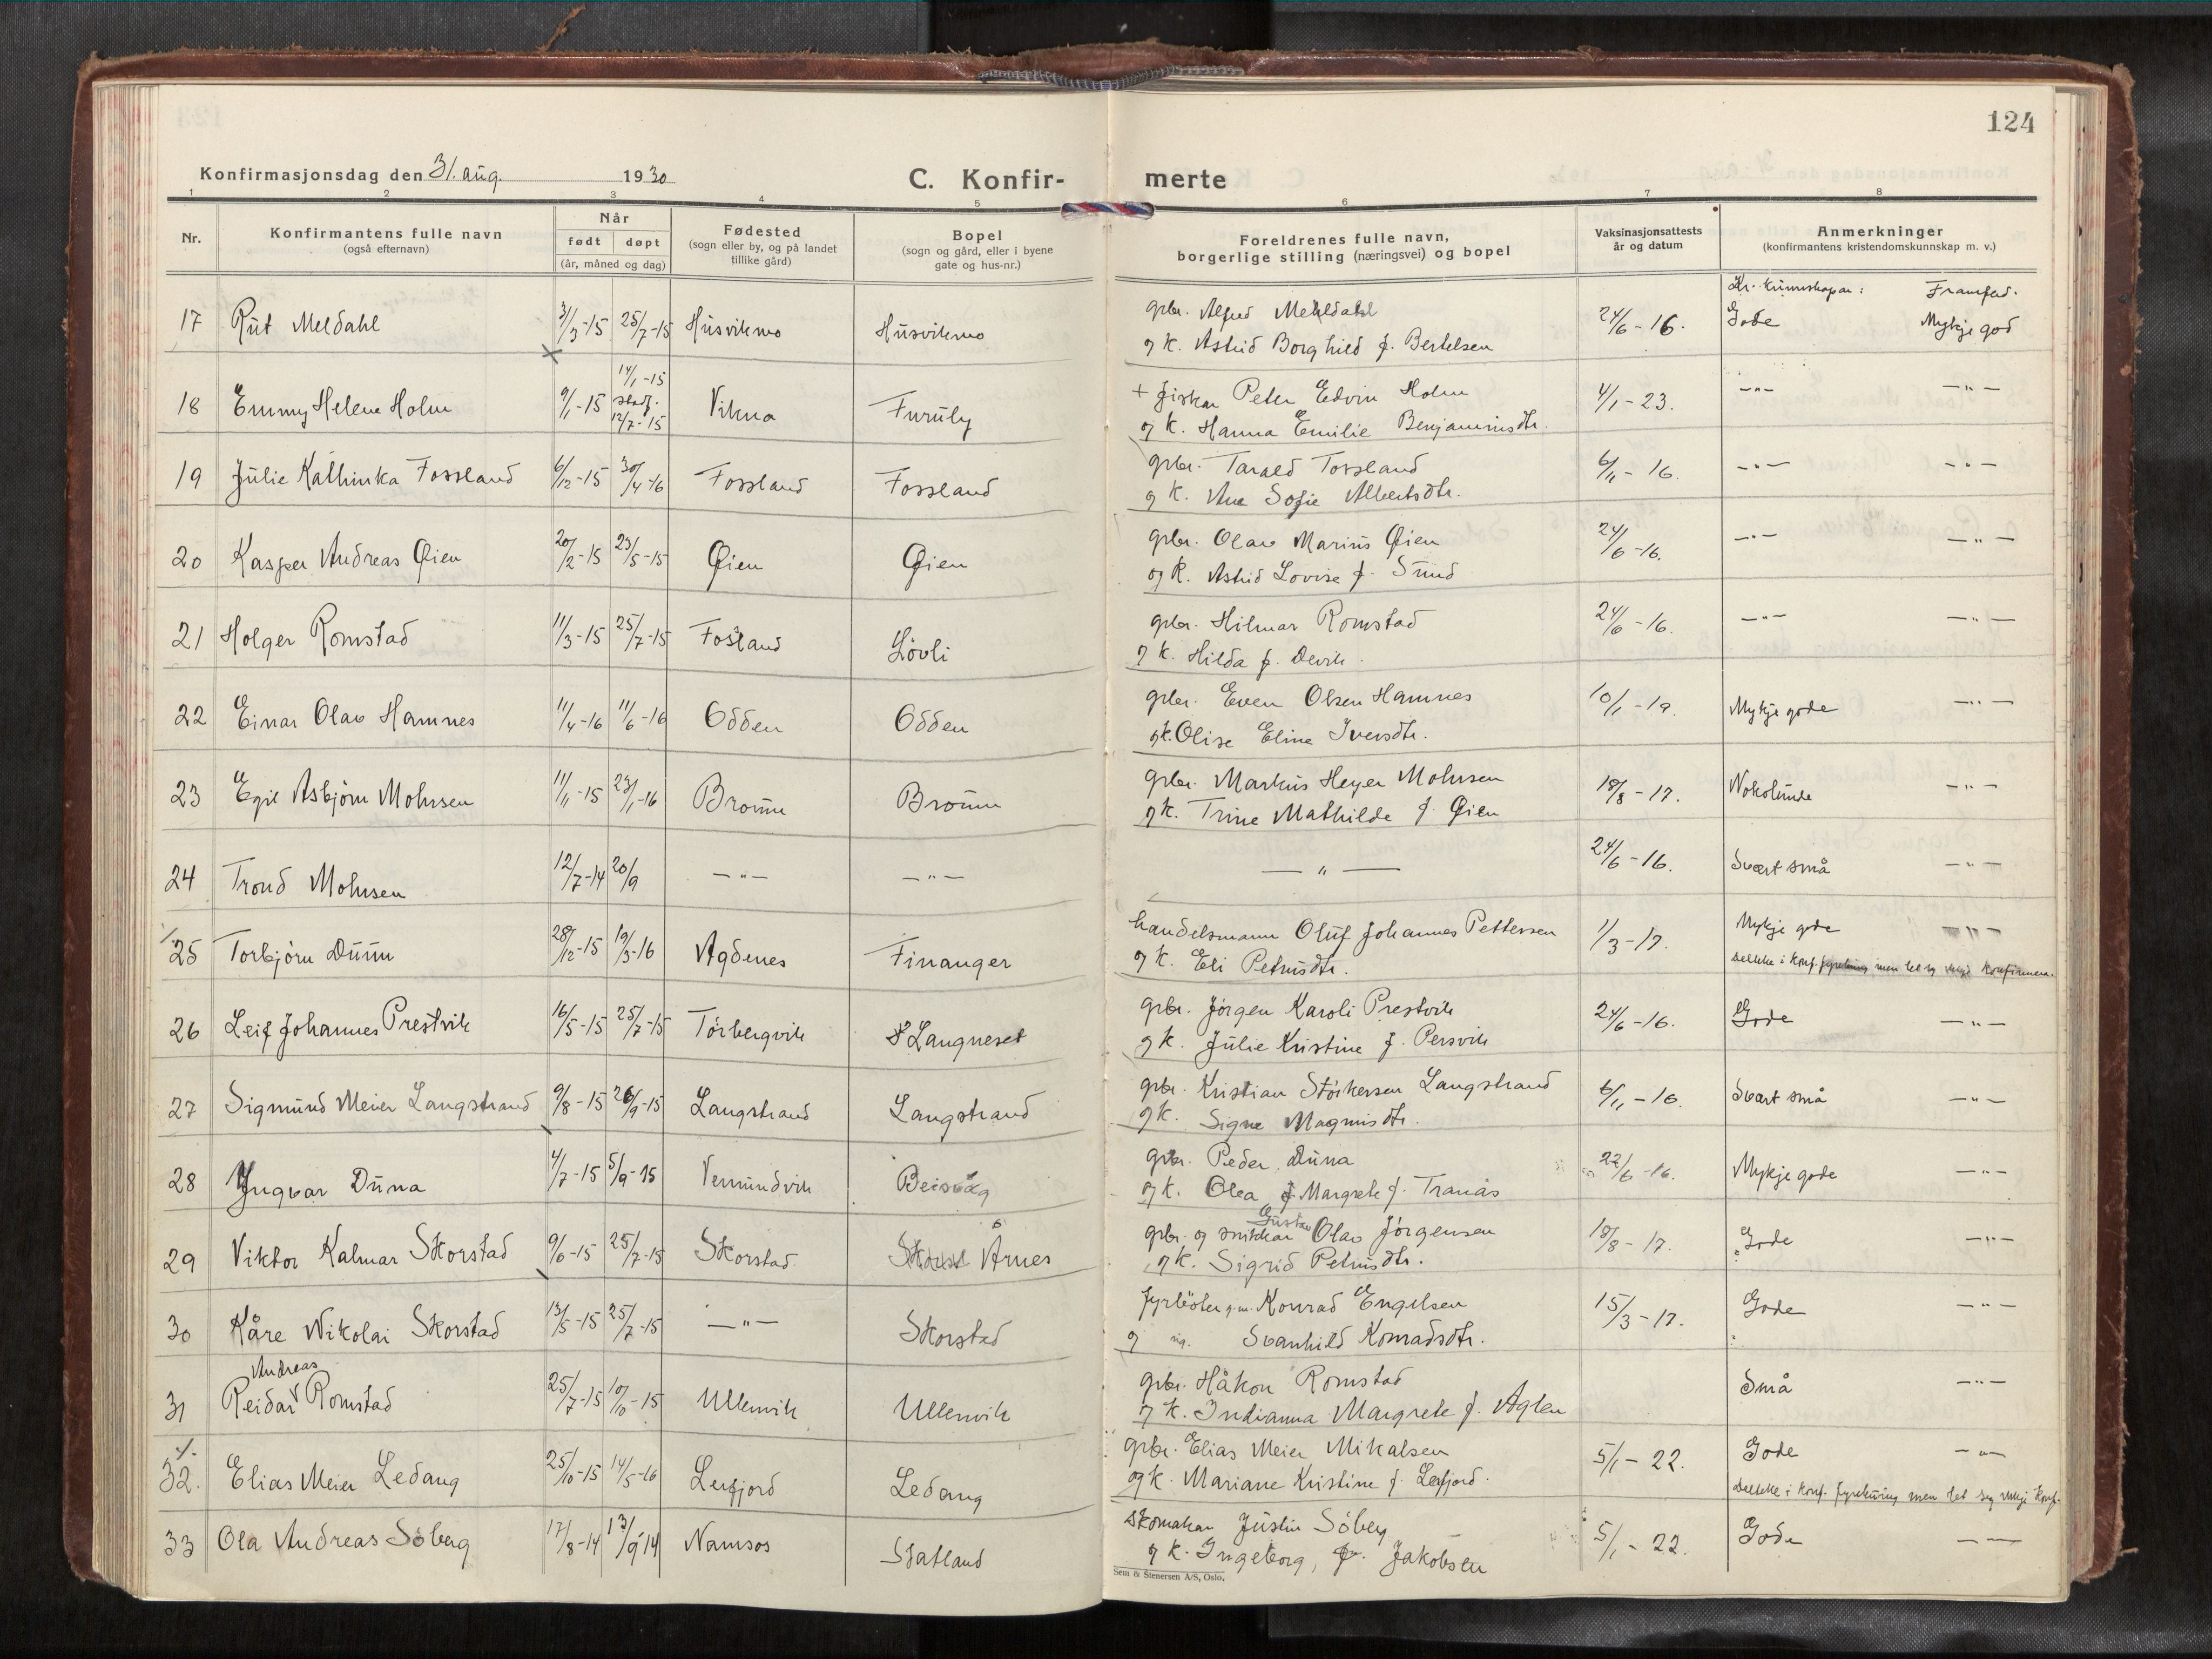 124
Konfirmasjonsdag den 31. aug. 1930
C. Konfir- merte
1 2 3 4 5 6 7 8
Nr. Konfirmantens fulle navn (også efternavn) Når født døpt (år, måned og dag) Fødested (sogn eller by, og på landet tillike gård) Bopel (sogn og gård, eller i byene gate og hus-nr.) Foreldrenes fulle navn, borgerlige stilling (næringsvei) og bopel Vaksinasjonsattests år og datum Anmerkninger (konfirmantens kristendomskunnskap m. v.)
Kr. kunnskapar: Framferd.
17 Rut Meldahl 3/3-15 25/7-15 Husvikmo Husvikmo gbr. Alfred Meldahl 24/6-16. Gode Mykje god
og K. Astrid Borghild f. Bertelsen
14/1-15
18 Emmy Helene Holm 9/1-15 stadf. 12/7-15 Vikna Furuly + fiskar Peter Edvin Holm 4/1-23. -"- -"-
og K. Hanna Emilie Benjaminsdtr.
19 Julie Kathinka Fossland 6/12-15 30/4-16 Fossland Fossland gbr. Tarald Fossland 6/11-16. -"- -"-
og K. Ane Sofie Albertsdtr.
20 Kasper Andreas Øien 20/2-15 23/5-15 Øien Øien gbr. Olav Marius Øien 24/6-16. -"- -"-
og K. Astrid Lovise f. Sund
21 Holger Romstad 11/3-15 25/7-15 Fosland Lövli gbr. Hilmar Romstad 24/6-16. -"- -"-
og K. Hilda f. Devik.
22 Einar Olav Hamnes 11/4-16 11/6-16 Odden Odden gbr. Even Olsen Hamnes 10/1-19. Mykje gode -"-
og K. Olise Eline Iversdtr.
23 Egil Asbjörn Mohnsen 11/11-15 23/1-16 Bromn Bromn gbr. Markus Heyer Mohnsen 18/8-17. Nokolunde -"-
og K. Trine Mathilde f. Øien
24 Trond Mohnsen 12/7-14 20/9 -"- -"- -"- 24/6-16. Svært små -"-
25 Torbjörn Duun 28/12-15 19/3-16 Agdenes Finanger handelsmann Oluf Johannes Pettersen 1/3-17. Mykje gode -"-
og K. Eli Petrusdtr. Deltok i konf. fyrebuing men let seg ikkje konfirmera.
26 Leif Johannes Prestvik 16/5-15 25/7-15 Törbergvik Langneset gbr. Jörgen Karoli Prestvik 24/6-16. Gode -"-
og K. Julie Kristine f. Persvik
27 Sigmund Meier Langstrand 9/8-15 26/9-15 Langstrand Langstrand gbr. Kristian Störkersen Langstrand 6/11-16. Svært små -"-
og K. Signe Magnusdtr.
28 Yngvar Duna 4/7-15 5/9-15 Vemundvik gbr. Peder Duna 22/6-16. Mykje gode -"-
og K. Olea Margrete f. Tranås
29 Viktor Kalmar Skorstad 9/6-15 25/7-15 Skorstad Årnes gbr. og snikkar Gustav Olav Jörgensen 18/8-17. Gode -"-
og K. Sigrid Petrusdtr.
30 Kåre Nikolai Skorstad 13/5-15 25/7-15 -"- Skorstad fyrböter g.m. Konrad Engelsen 15/3-17. Gode -"-
og ug. Svanhild Konradsdtr.
31 Reidar Andreas Romstad 25/7-15 10/10-15 Ullenvik Ullenvik gbr. Håkon Romstad Små -"-
og K. Indianna Margrete f. Aglen
32. Elias Meier Ledang 25/10-15 14/5-16 Lerfjord Ledang gbr. Elias Meier Mikalsen 5/1-22. Gode -"-
og K. Mariane Kristine f. Lerfjord. Deltok i konf. fyrebuing men let seg ikkje konf.
33 Ola Andreas Söberg 17/8-14 13/9 14 Namsos Statland skomakar Justin Söberg 5/1-22. Gode -"-
og K. Ingeborg, f. Jakobsen
Sem & Stenersen A/S, Oslo.